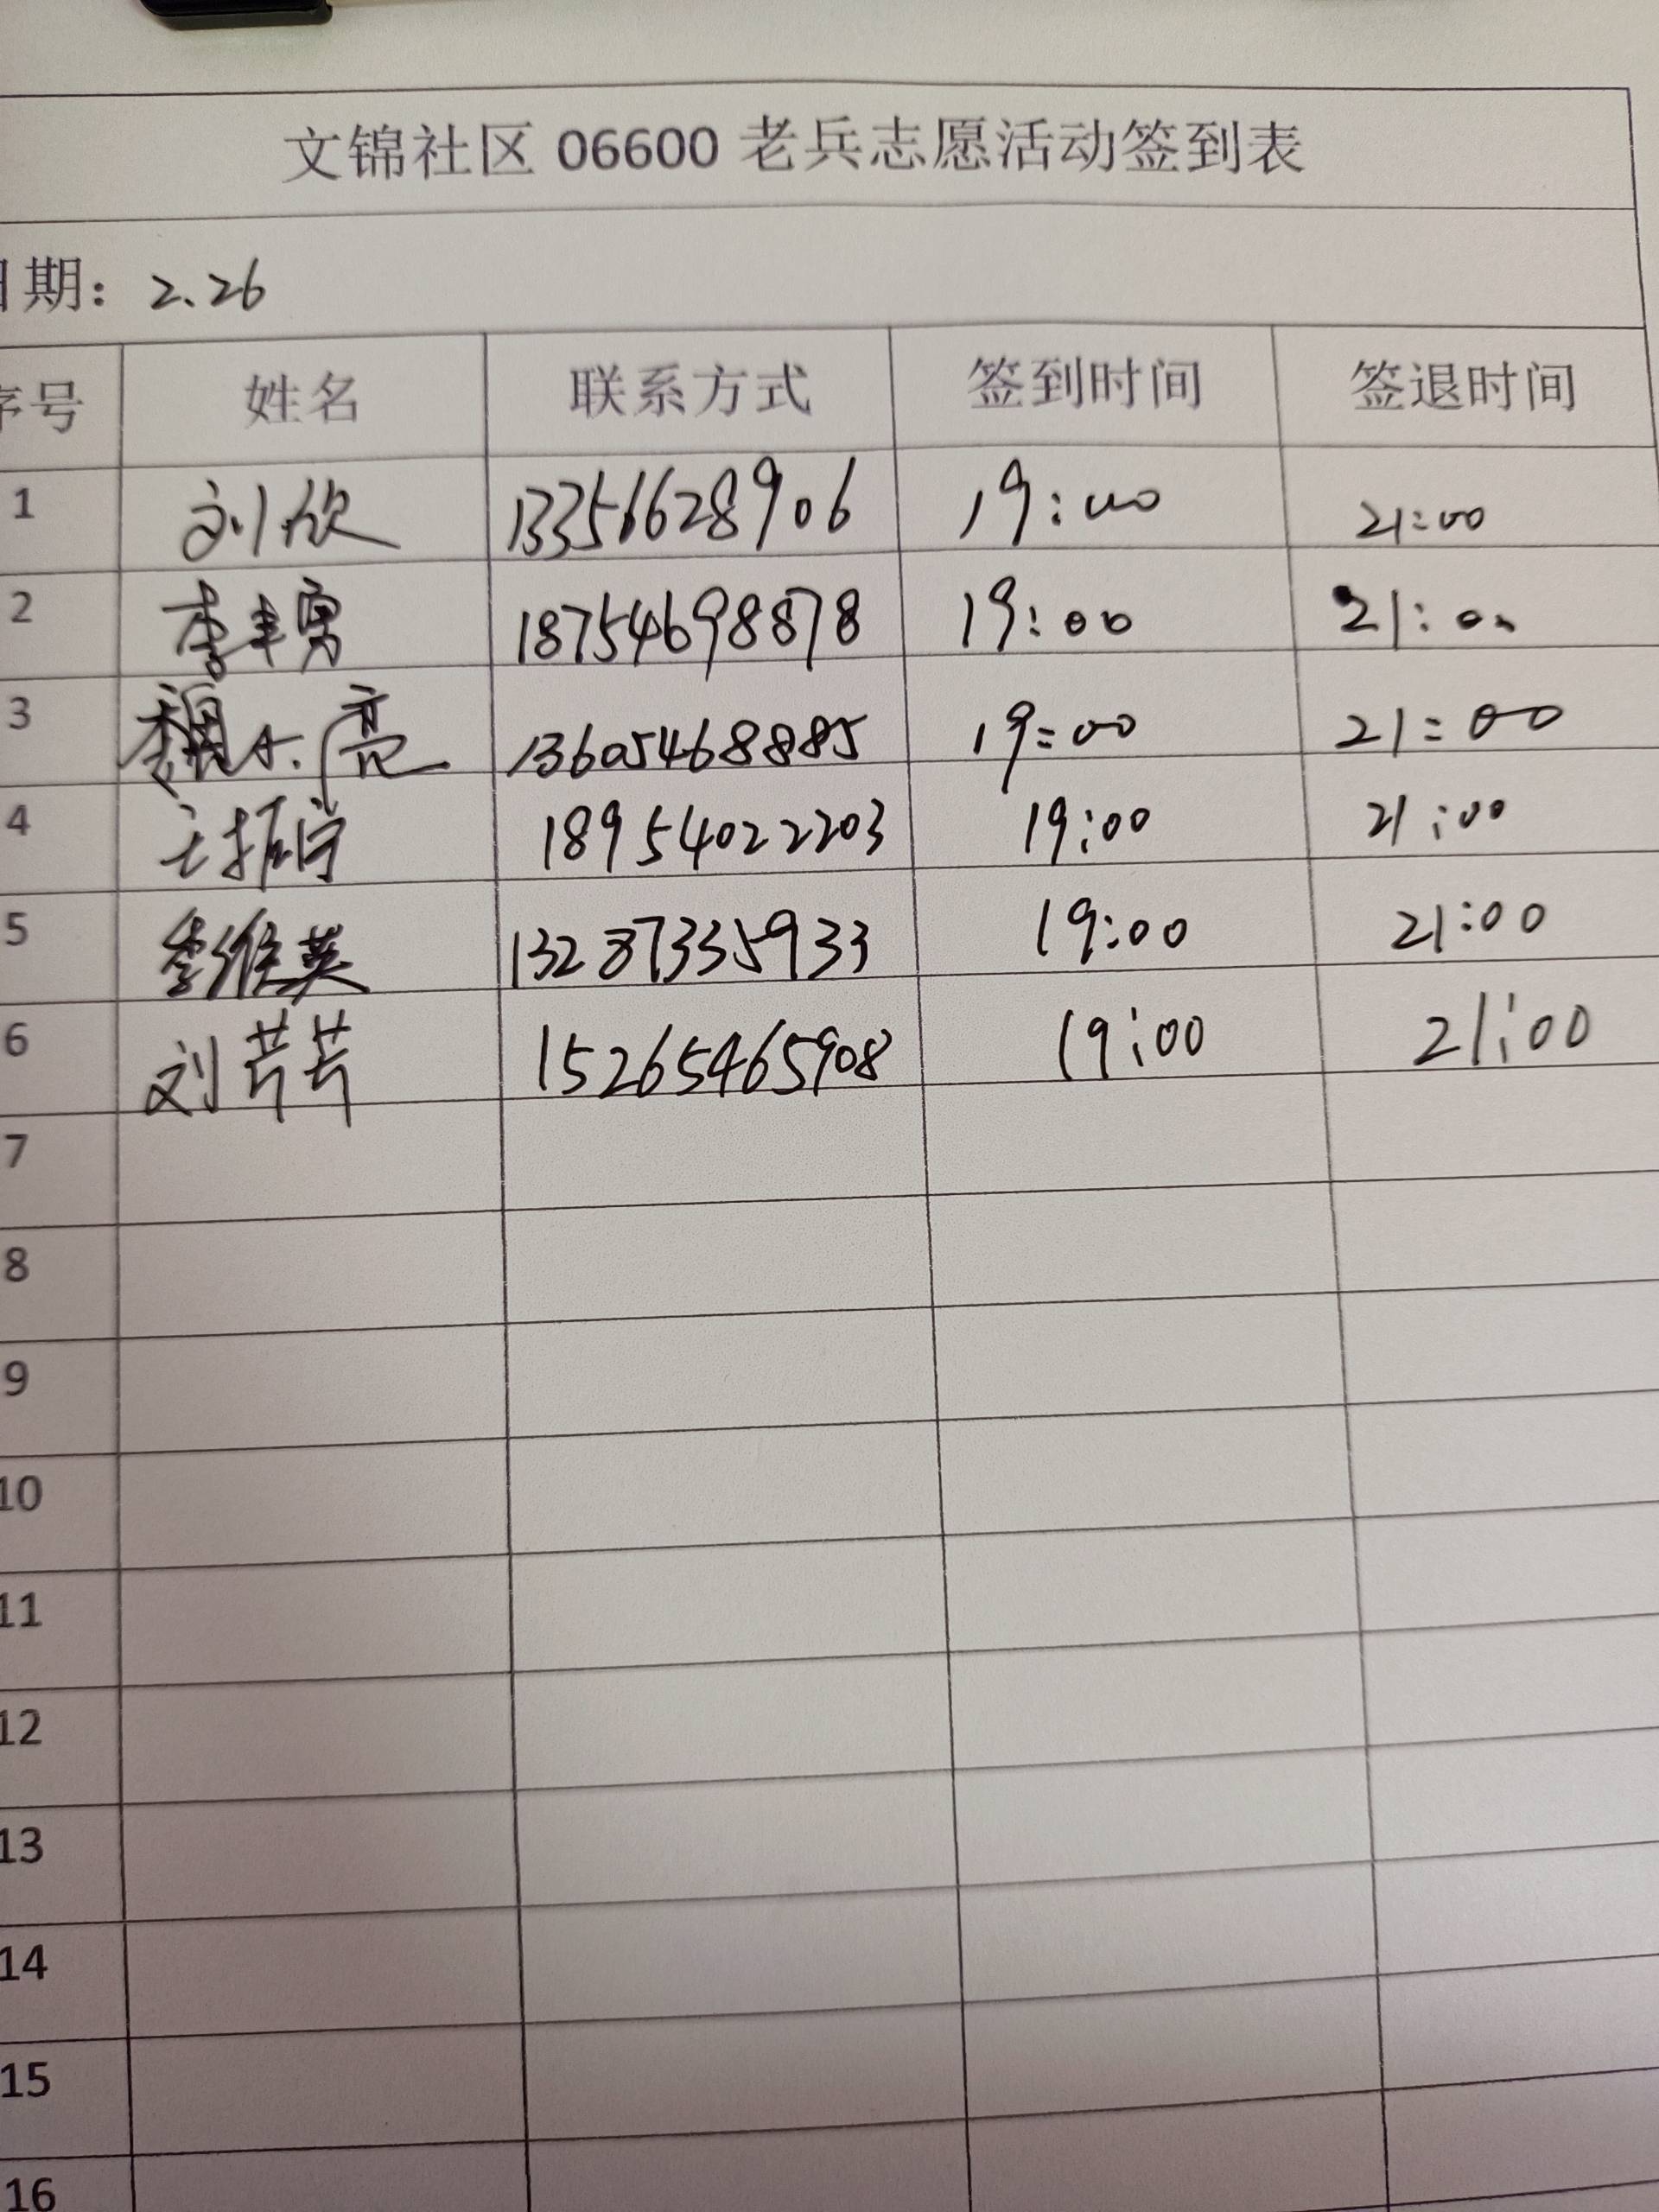 文锦社区 06600 老兵志愿活动签到表
日期: 2.26
序号 姓名 联系方式 签到时间 签退时间
1 刘欣 13356628906 19:00 21:00
2 李丰勇 18754698878 19:00 21:00
3 魏小亮 13605468885 19:00 21:00
4 18954022203 19:00 21:00
5 李维英 13287335933 19:00 21:00
6 刘芹芹 15265465908 19:00 21:00
7
8
9
10
11
12
13
14
15
16